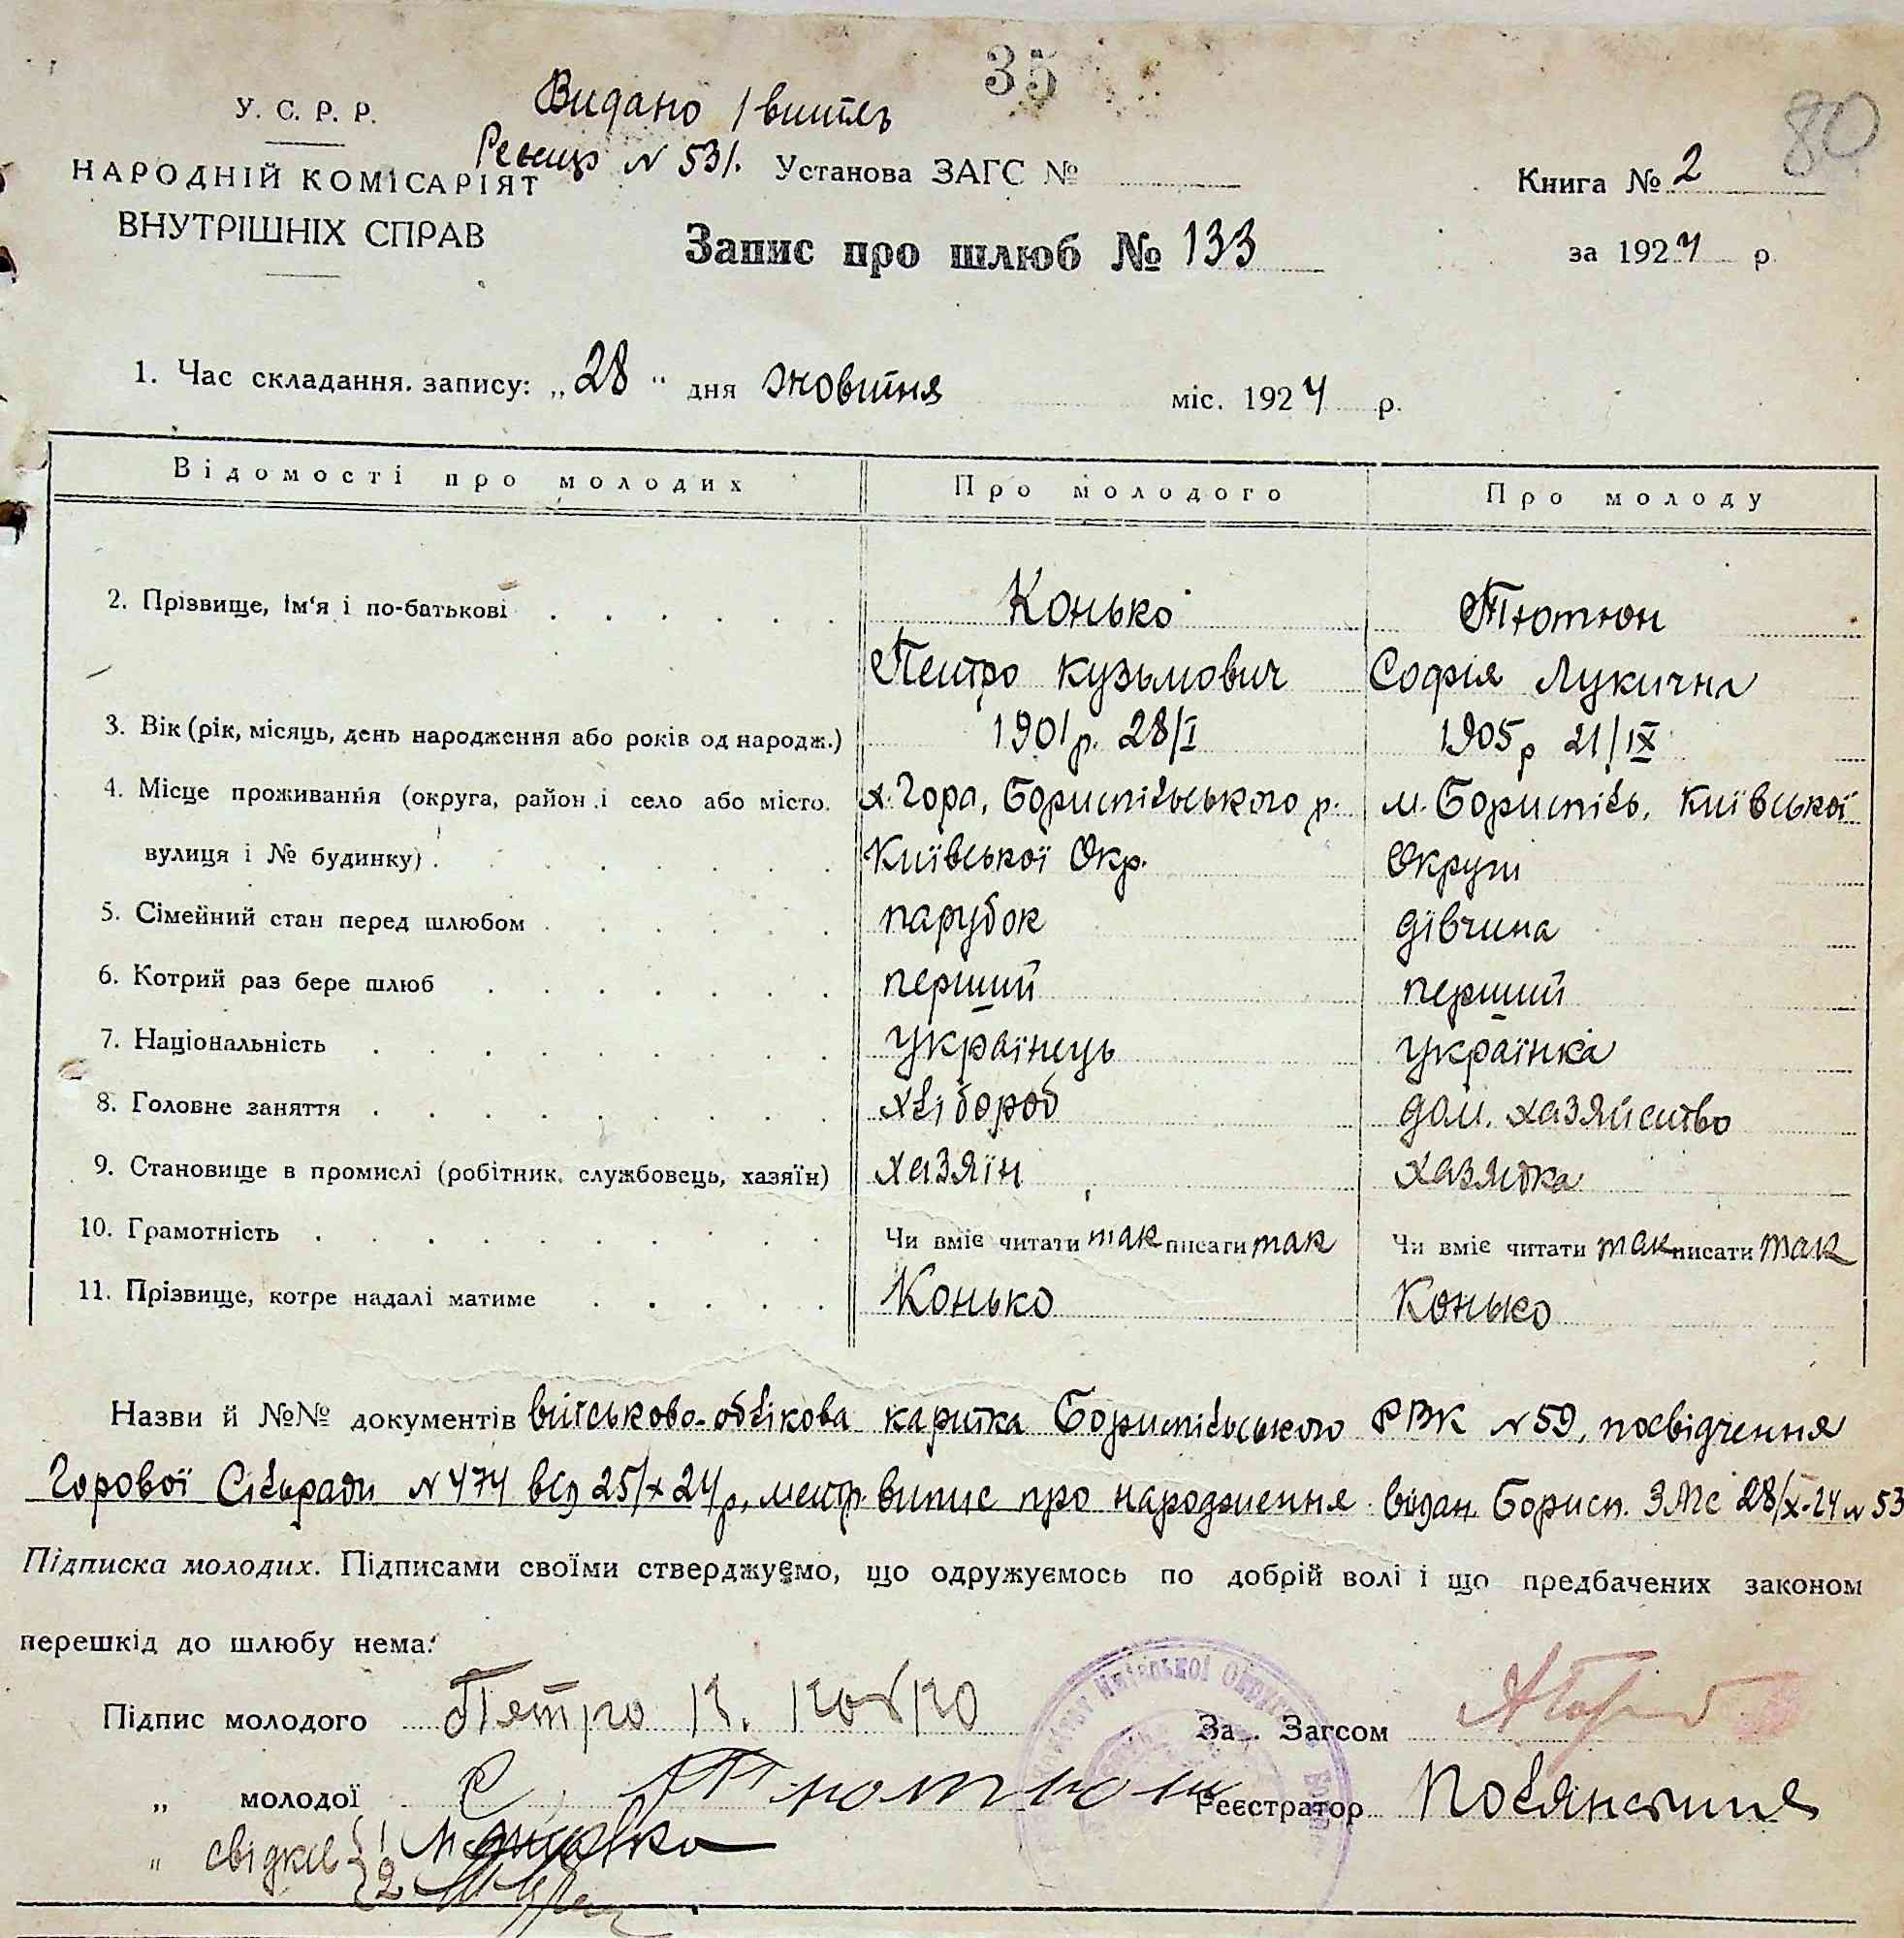 35
80
У. С. Р. Р.
Видано 1 витяг
НАРОДНІЙ КОМІСАРІЯТ
ВНУТРІШНІХ СПРАВ
№ 531. Установа ЗАГС №
Книга № 2
Запис про шлюб № 133
за 1924 р.
1. Час складання запису: „28" дня жовтня міс. 1924 р.
Відомості про молодих Про молодого Про молоду
2. Прізвище, ім'я і по-батькові Конько Тютюн
Петро Кузьмович Софія Лукична
3. Вік (рік, місяць, день народження або років од народж.) 1901 р. 28/I 1905 р 21/IX
4. Місце проживання (округа, район і село або місто. х. Гора, Бориспільського р. м. Бориспіль, Київської
вулиця і № будинку) Київської Окр. Округи
5. Сімейний стан перед шлюбом парубок дівчина
6. Котрий раз бере шлюб перший перший
7. Національність українець українка
8. Головне заняття хлібороб дом. хазяйство
9. Становище в промислі (робітник, службовець, хазяїн) хазяїн хазяйка
10. Грамотність Чи вміє читати так писати так Чи вміє читати так писати так
11. Прізвище, котре надалі матиме Конько Конько
Назви й №№ документів військово-облікова картка Бориспільського РВК № 59, посвідчення
Горової Сільради № 474 від 25/X 24 р., метр. випис про народження видан. Борисп. 28/X-24 № 53
Підписка молодих. Підписами своїми стверджуємо, що одружуємось по добрій волі і що предбачених законом
перешкід до шлюбу нема.
Підпис молодого Петро К. Конько За Загсом
„ молодої С. Тютюн Реєстратор
„ свідків 1
2